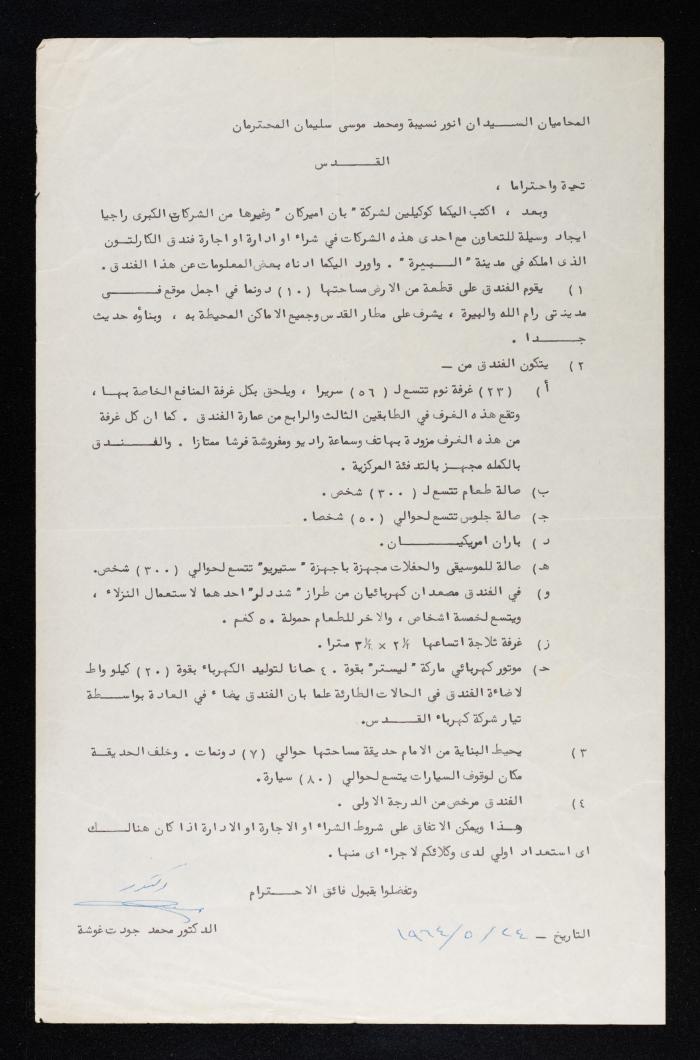 المحاميان السيدان انور نسيبة ومحمد موسى سليمان المحترمان
القدس
تحية واحتراما ،
وبعد ، اكتب اليكما كوكيلين لشركة "بان اميركان" وغيرها من الشركات الكبرى راجيا
ايجاد وسيلة للتعاون مع احدى هذه الشركات في شراء او ادارة او اجارة فندق الكارلتون
الذى املكه في مدينة "البيرة" . واورد اليكما ادناه بعض المعلومات عن هذا الفندق .
١) يقوم الفندق على قطعة من الارض مساحتها (١٠) دونما في اجمل موقع في
مدينتي رام الله والبيرة ، يشرف على مطار القدس وجميع الاماكن المحيطة به ، وبناؤه حديث
جدا .
٢) يتكون الفندق من —
أ) (٢٣) غرفة نوم تتسع لـ (٥٦) سريرا ، ويلحق بكل غرفة المنافع الخاصة بها ،
وتقع هذه الغرف في الطابقين الثالث والرابع من عمارة الفندق . كما ان كل غرفة
من هذه الغرف مزودة بهاتف وسماعة راديو ومفروشة فرشا ممتازا . والفندق
بالكمله مجهز بالتدفئة المركزية .
ب) صالة طعام تتسع لـ (٣٠٠) شخص .
ج) صالة جلوس تتسع لحوالي (٥٠) شخصا .
د) باران امريكيان .
هـ) صالة للموسيقى والحفلات مجهزة باجهزة "ستيريو" تتسع لحوالي (٣٠٠) شخص.
و) في الفندق مصعدان كهربائيان من طراز "شندلو" احدهما لاستعمال النزلاء ،
ويتسع لخمسة اشخاص ، والاخر للطعام حمولة ٥٠ كغم .
ز) غرفة ثلاجة اتساعها ٢½ × ٣½ مترا .
ح) موتور كهربائي ماركة "ليستر" بقوة ٤٠ حصانا لتوليد الكهرباء بقوة (٢٠) كيلو واط
لاضاءة الفندق في الحالات الطارئة علما بان الفندق يضاء في العادة بواسطة
تيار شركة كهرباء القدس.
٣) يحيط البناية من الامام حديقة مساحتها حوالي (٧) دونمات . وخلف الحديقة
مكان لوقوف السيارات يتسع لحوالي (٨٠) سيارة.
٤) الفندق مرخص من الدرجة الاولى .
هذا ويمكن الاتفاق على شروط الشراء او الاجارة او الادارة اذا كان هنالك
اى استعداد اولي لدى وكلائكم لاجراء اى منها .
وتفضلوا بقبول فائق الاحترام
دكتور
الدكتور محمد جودت غوشة
التاريخ — ٢٤/٥/١٩٦٤